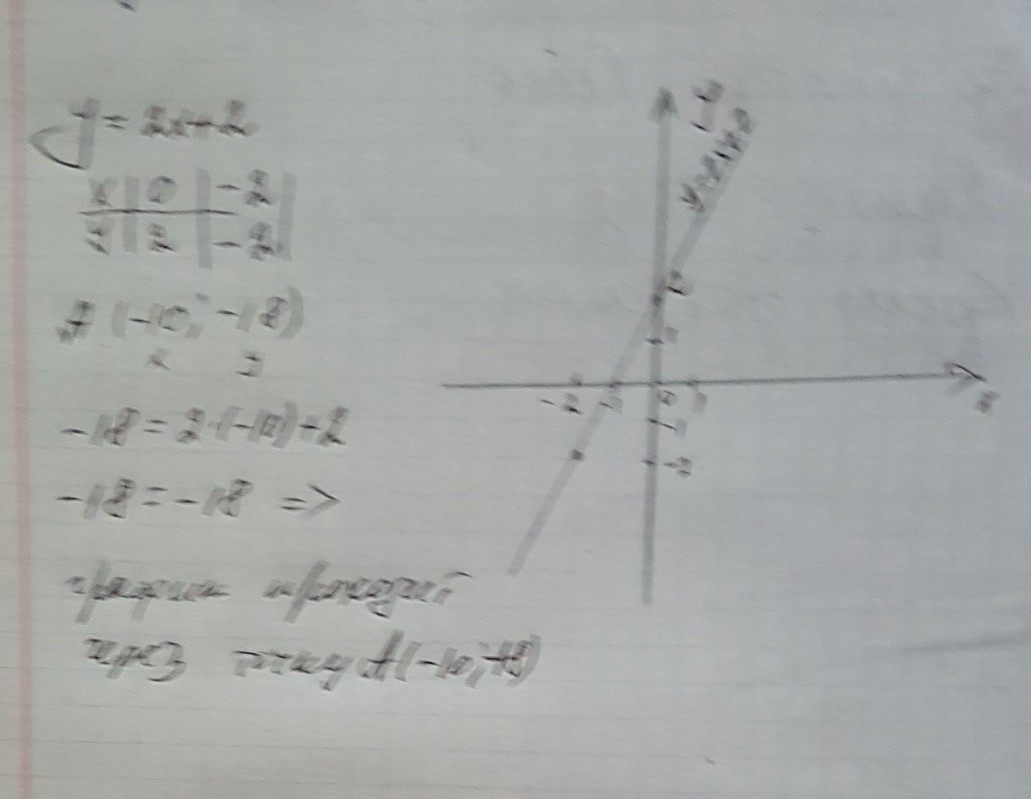 y = 2x+2
x | 0 | -2 |
y | 2 | -2 |
A (-10; -18)
x y
-18 = 2·(-10)+2
-18 = -18 =>
график проходит
через точку A(-10;-18)
y
y=2x+2
2
1
-2 -1 0 1
x
-1
-2